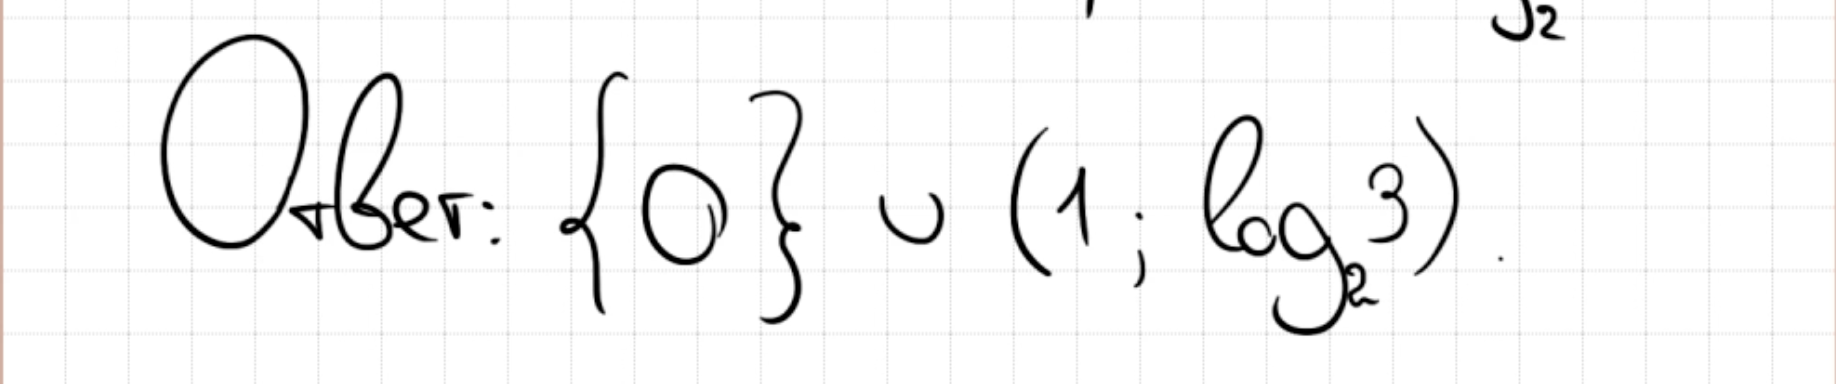 Ответ: {0} ∪ (1; log₂3).